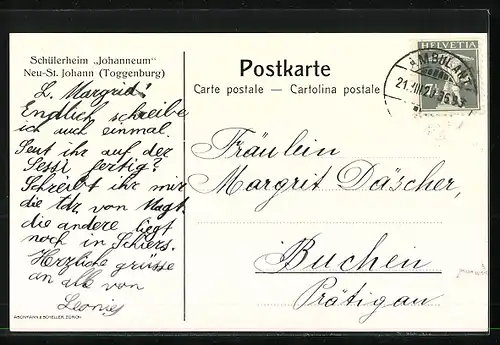 Schülerheim „Johanneum"
Neu-St. Johann (Toggenburg)
Postkarte
Carte postale — Cartolina postale
HELVETIA
AMBULANT
L. Margrid!
Endlich schreibe
ich auch einmal.
Seut ihr auf der
Sessi fertig?
Schreibt ihr mir
die Adr. von Magt.
die andere liegt
noch in Schiers.
Herzliche grüsse
an alle von
Leonie
Fräulein
Margrit Däscher,
Buchen
Prätigau